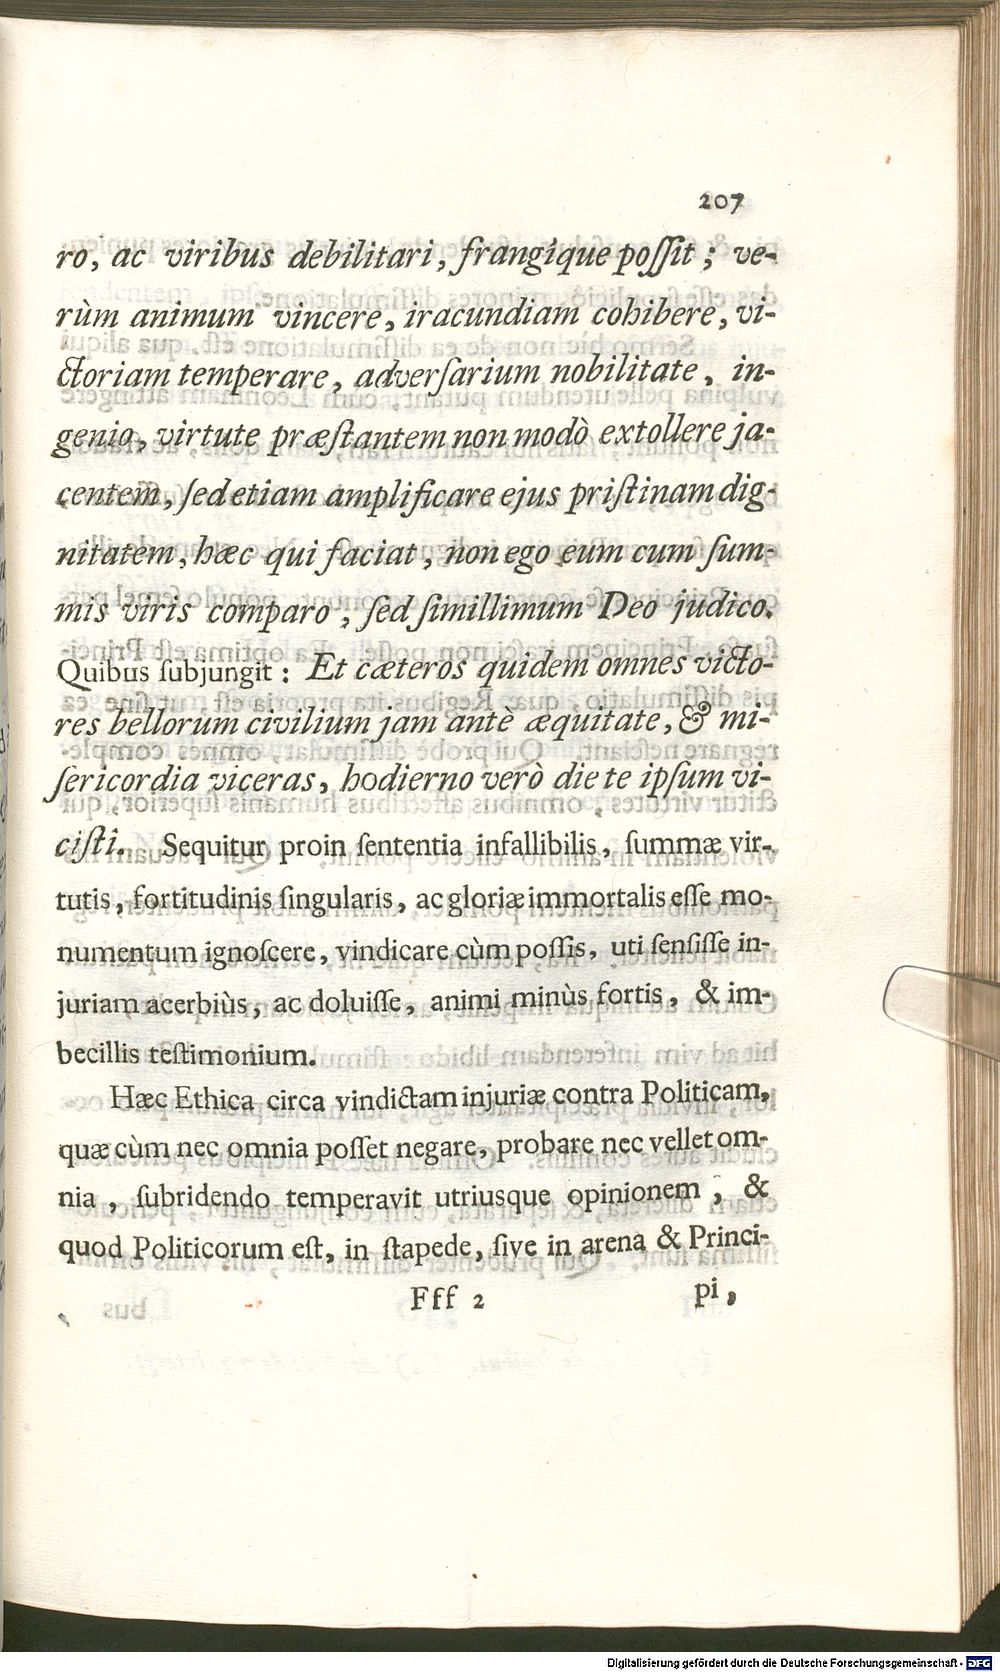 207
ro, ac viribus debilitari, frangique poſſit; ve-
rùm animum vincere, iracundiam cohibere, vi-
ctoriam temperare, adverſarium nobilitate, in-
genio, virtute præſtantem non modò extollere ja-
centem, ſed etiam amplificare ejus priſtinam dig-
nitatem, hæc qui faciat, non ego eum cum ſum-
mis viris comparo, ſed ſimillimum Deo judico.
Quibus ſubjungit: Et cæteros quidem omnes victo-
res bellorum civilium jam antè æquitate, & mi-
ſericordia viceras, hodierno verò die te ipſum vi-
ciſti. Sequitur proin ſententia infallibilis, ſummæ vir-
tutis, fortitudinis ſingularis, ac gloriæ immortalis eſſe mo-
numentum ignoſcere, vindicare cùm poſſis, uti ſenſiſſe in-
juriam acerbiùs, ac doluiſſe, animi minùs fortis, & im-
becillis teſtimonium.
Hæc Ethica circa vindictam injuriæ contra Politicam,
quæ cùm nec omnia poſſet negare, probare nec vellet om-
nia, ſubridendo temperavit utriusque opinionem, &
quod Politicorum eſt, in ſtapede, ſive in arena & Princi-
Fff 2 pi,
Digitalisierung gefördert durch die Deutsche Forschungsgemeinschaft - DFG